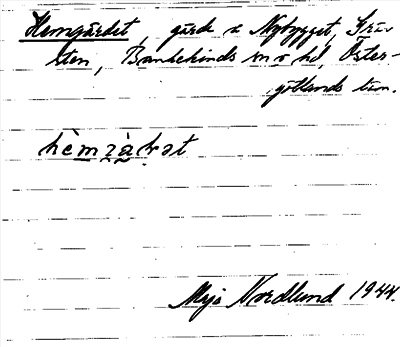 Hemgärdet, gärde å Nybygget, Grä-
sten, Bankekinds sn o hd, Öster-
götlands län.
hèmzàḥət
Maja Nordlund 1944.